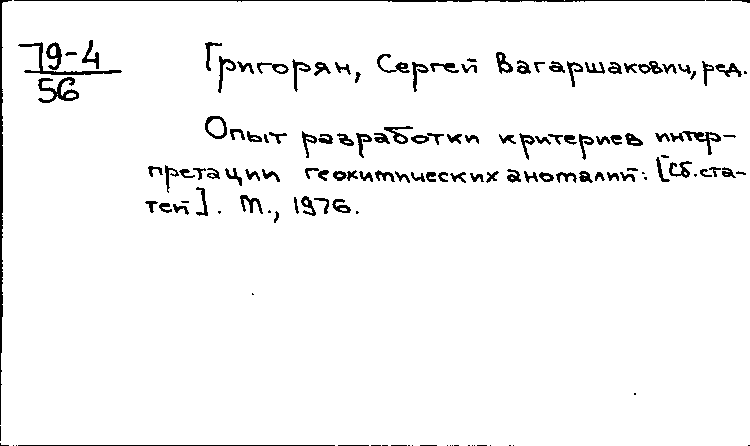 79-4
56
Григорян, Сергей Вагаршакович, ред.
Опыт разработки критериев интер-
претации геохимических аномалий: [Сб. ста-
тей]. М., 1976.